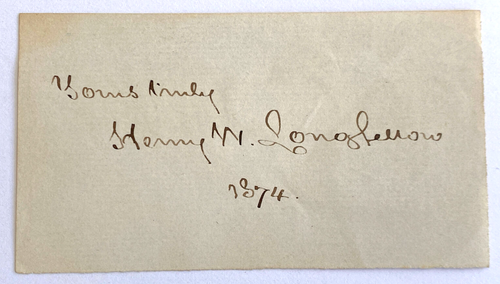 Yours truly
Henry W. Longfellow
1874.